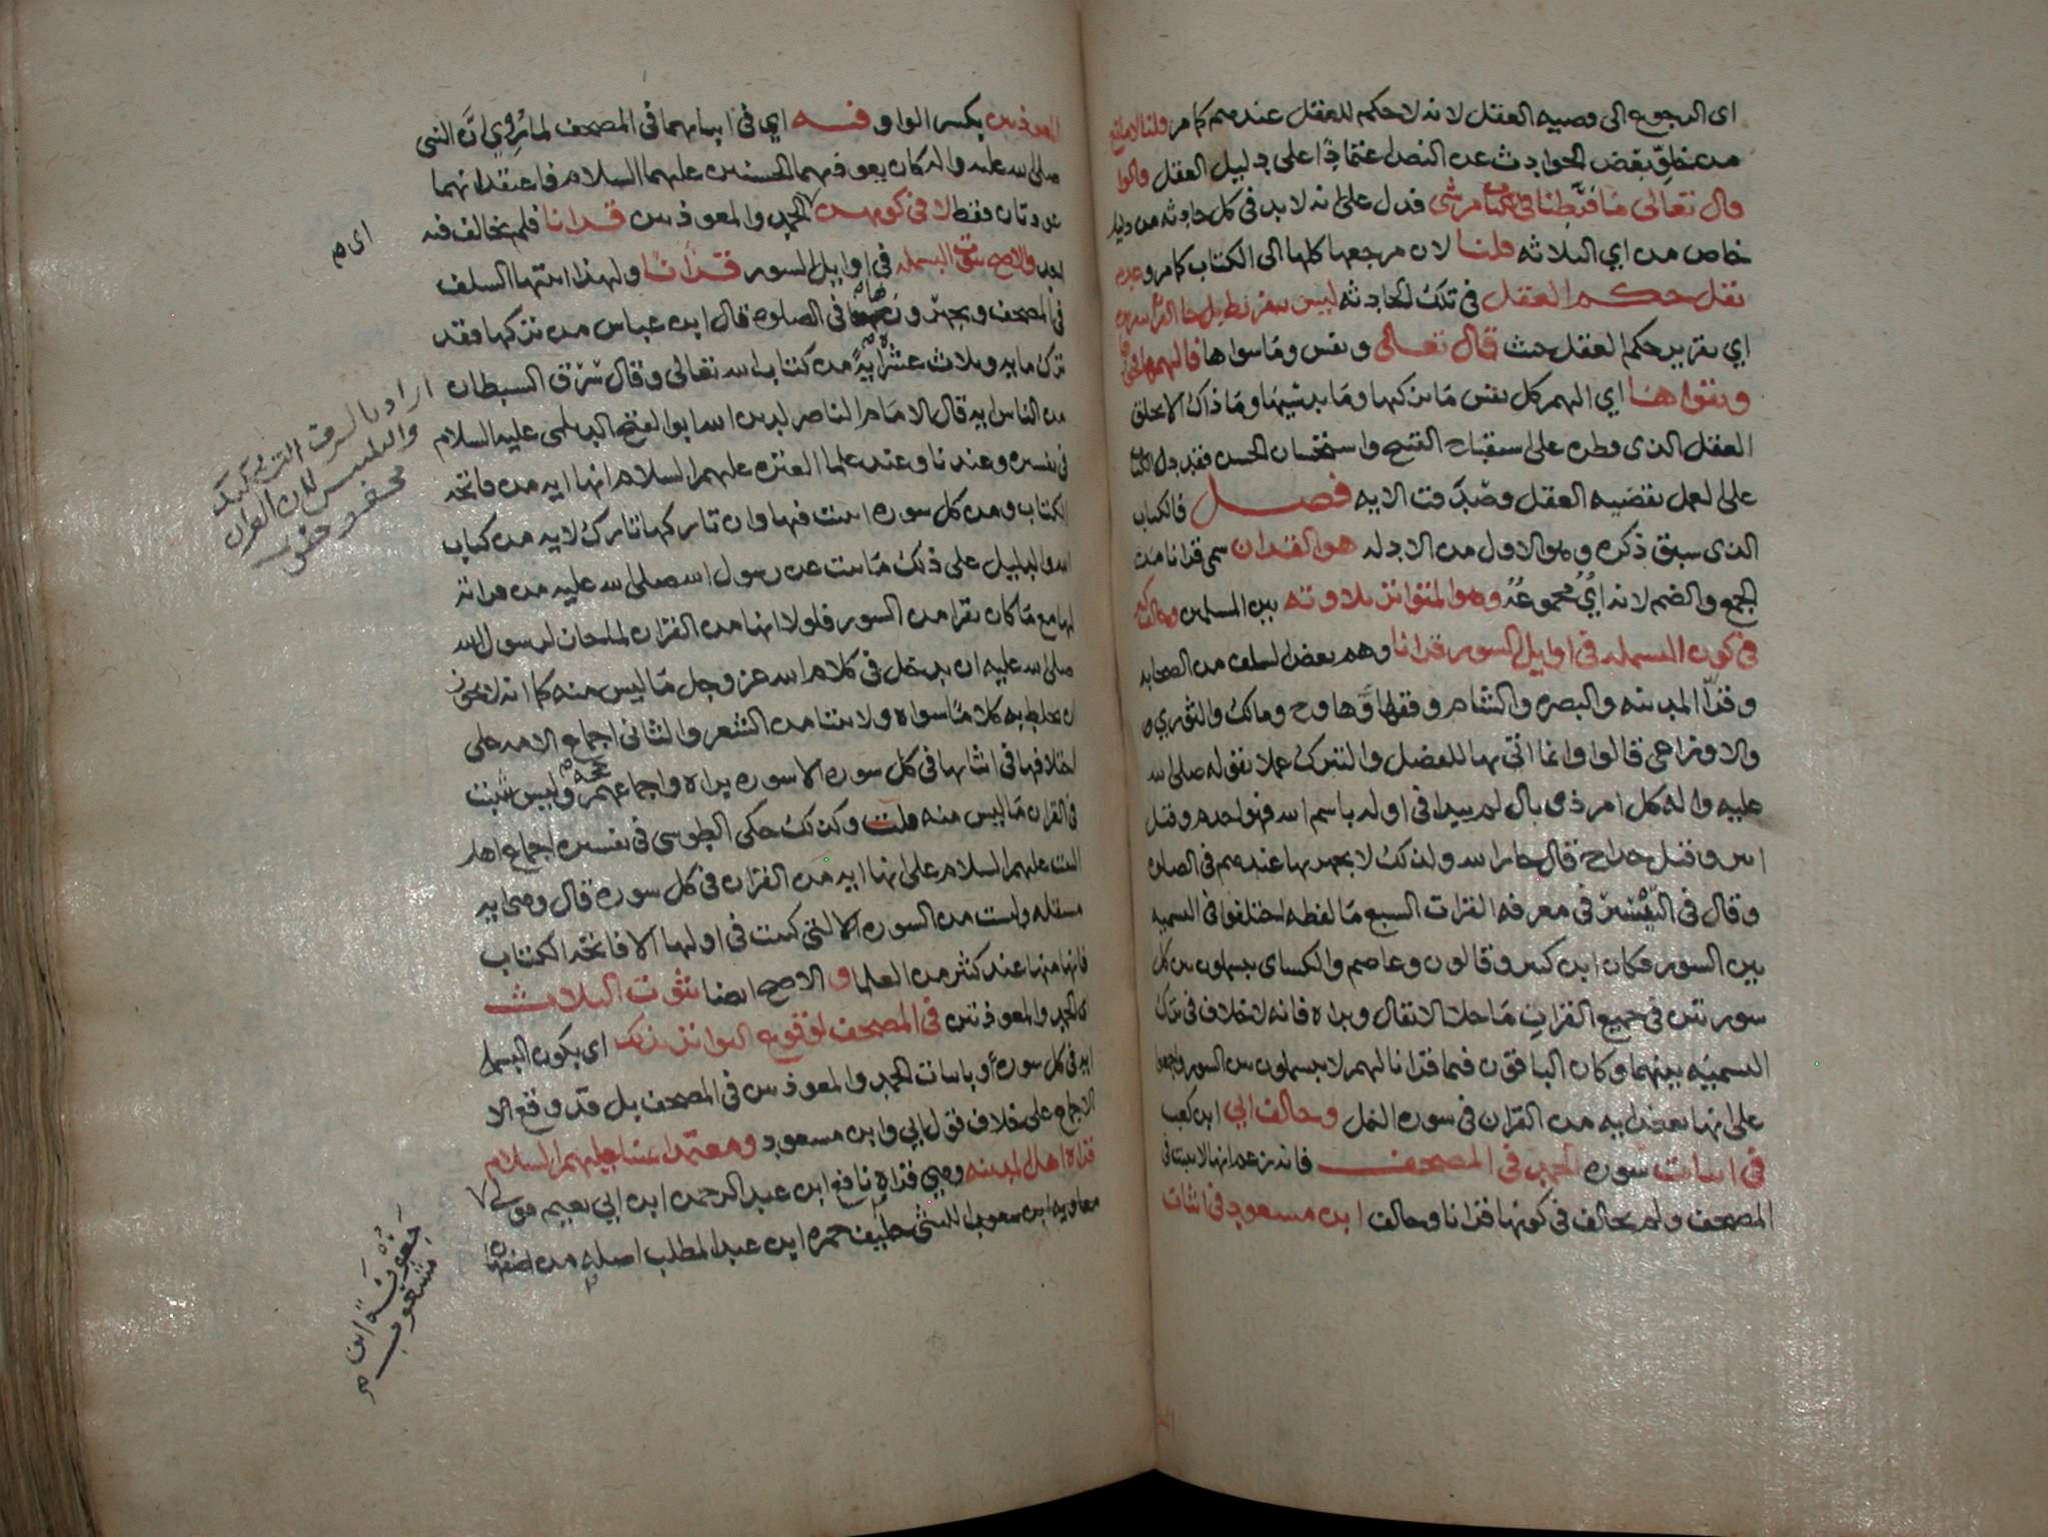 اي الرجوع الى قضيه العقل لانه لا حكم للعقل عندهم كما مر قلنا لا مانع
من خلو بعض الحوادث عن النص اعتمادًا على دليل العقل قالوا
قال تعالى ما فرَّطنا في الكتاب من شي فدل على انه لا بد في كل حادثه من دليل
خاص من اي الثلاثه قلنا لان مرجعها كلها الى الكتاب كما مر وعدم
نقل حكم العقل في تلك الحادثه ليس
اي تقرير حكم العقل حيث قال تعالى ونفس وما سواها فالهمها فجورها
وتقواها اي الهم كل نفس ما يزكيها وما يدسيها وما ذاك الا بخلق
العقل الذي فطره على استقباح القبيح واستحسان الحسن فقد دل الكتاب
على العمل بقضيه العقل وصدقت الايه فصل فالكتاب
الذي سبق ذكره وهو الاول من الادله هو القران سمي قرانا من
الجمع والضم لانه ايٌ مجموعةٌ وهو المتواتر تلاوته بين المسلمين وخالف
في كون البسمله في اوايل السور قرانا وهم بعض السلف من الصحابه
وقرّا المدينه والبصره والشام وفقهاوها وح ومالك والثوري
والاوزاعي قالوا وانما اتي بها للفصل والتبرك عملا بقوله صلى الله
عليه واله كل امر ذي بال لم يبدا في اوله باسم الله فهو اجذم وقيل
ابتر وقيل خداج قال جار الله ولذلك لا يجهر بها عندهم في الصلاه
وقال في التيسير في معرفه القرات السبع ما لفظه اختلفوا في التسميه
بين السور فكان ابن كثير وقالون وعاصم والكساي يبسملون بين كل
سورتين في جميع القران ما خلا الانفال وبراه فانه لا خلاف في ترك
التسميه بينهما وكان الباقون فيما قرانا لهم لا يبسملون بين السور واجمعوا
على انها بعض ايه من القران في سوره النمل وخالف ابي ابن كعب
في اثبات سوره الحمد في المصحف فانه زعم انها لا تثبت في
المصحف ولم يخالف في كونها قرانا وخالف ابن مسعود في اثبات
المعوذتين بكسر الواو فيه اي في اثباتهما في المصحف لما رُوِي انَّ النبي
صلى الله عليه واله كان يعوذ بهما الحسنين عليهما السلام فاعتقد انهما
عوذتان فقط لا في كونهن الحمد والمعوذتين قرانا فلم يخالف فيه
اي
احد والاصح ثبوت البسمله في اوايل السور قرانا ولهذا اثبتها السلف
في المصحف ويجهرون بها في الصلوه قال ابن عباس من تركها فقد
ترك مايه وثلاث عشر ايهً من كتاب الله تعالى وقال سَرَق الشيطان
من الناس ايه قال الامام الناصر لدين الله ابو الفتح الديلمي عليه السلام
في تفسيره وعندنا وعند علما العتره عليهم السلام انها ايه من فاتحه
الكتاب ومن كل سوره اثبتت فيها وان تاركها تارك لايه من كتاب
الله والدليل على ذلك ما ثبت عن رسول الله صلى الله عليه من قراته
لها مع ما كان يقرا من السور فلولا انها من القران لما جاز لرسول الله
صلى الله عليه ان يدخل في كلام الله عز وجل ما ليس منه كما انه لا يجوز
ان يخلط به كلاما سواه ولا بيتا من الشعر والثاني اجماع الامه على
اختلافها في اثباتها في كل سوره الا سوره براه واجماعهم حجه وليس يثبت
في القران ما ليس منه قلت وكذلك حكى الطوسي في تفسيره اجماع اهل
البيت عليهم السلام على انها ايه من القران في كل سوره قال وهي ايه
مستقله وليست من السوره التي كتبت في اولها الا فاتحه الكتاب
فانها منها عند كثير من العلما و الاصح ايضا ثبوت الثلاث
اي الحمد والمعوذتين في المصحف لوقوع التواتر بذلك اي بكون البسمله
ايه في كل سوره او باثبات الحمد والمعوذتين في المصحف بل قد وقع الا
الاجماع على خلاف قول ابي وابن مسعود ومعتمد ايمتنا عليهم السلام
قراه اهل المدينه وهي قراه نافع ابن عبد الرحمن ابن ابي نعيم مولى
معاويه ابن شعوب الليثي حليف حمزه ابن عبد المطلب اصله من اصفهان
اراد بالسرق
لان القران
محفوظ
جَعْوَنَة ابن
شعوب